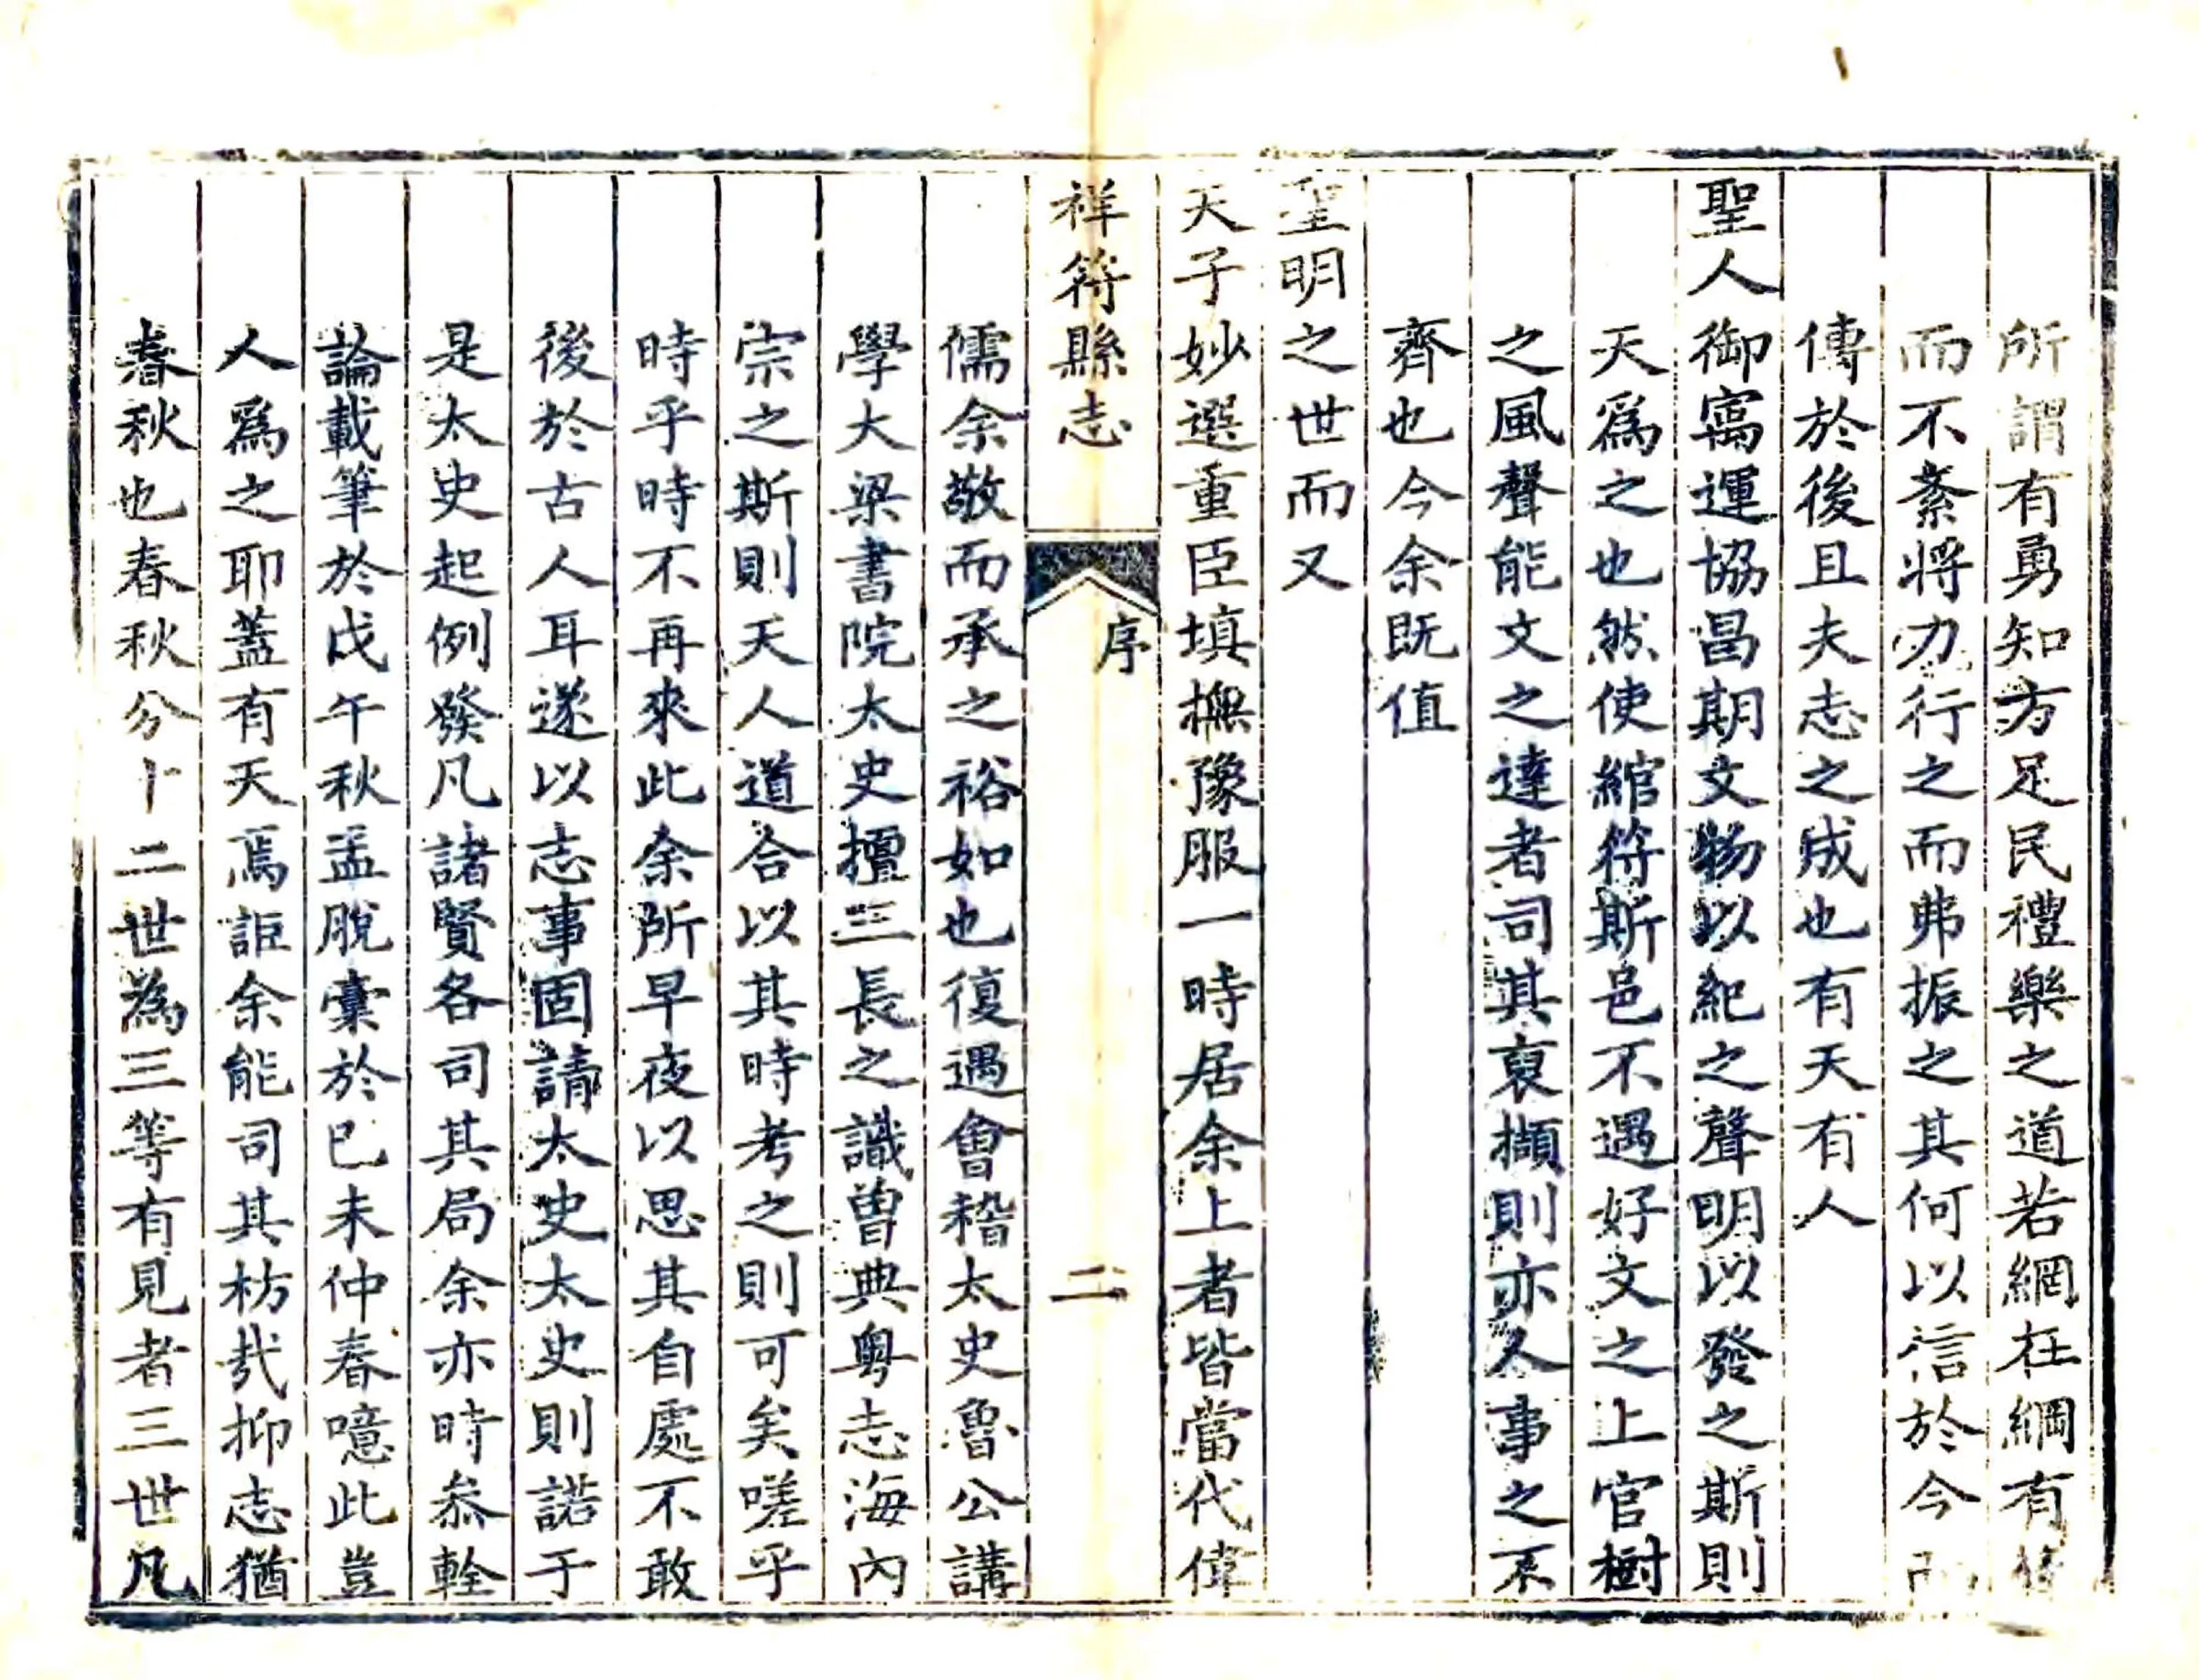 所謂有勇知方足民禮樂之道若網在綱有條
而不紊將力行之而弗振之其何以信於今而
傳於後且夫志之成也有天有人
聖人御㝢運協昌期文物以紀之聲明以發之斯則
天爲之也然使綰符斯邑不遇好文之上官樹
之風聲能文之達者司其裒擷則亦人事之不
齊也今余既值
聖明之世而又
天子妙選重臣填撫豫服一時居余上者皆當代偉
祥符縣志
序
二
儒余敬而承之裕如也復遇會稽太史魯公講
學大梁書院太史擅三長之識曾典粤志海內
宗之斯則天人道合以其時考之則可矣嗟乎
時乎時不再來此余所早夜以思其自處不敢
後於古人耳遂以志事固請太史太史則諾于
是太史起例發凡諸賢各司其局余亦時叅輇
論載筆於戊午秋孟脫稾於巳未仲春噫此豈
人爲之耶蓋有天焉詎余能司其枋㢤抑志猶
春秋也春秋分十二世為三等有見者三世凡